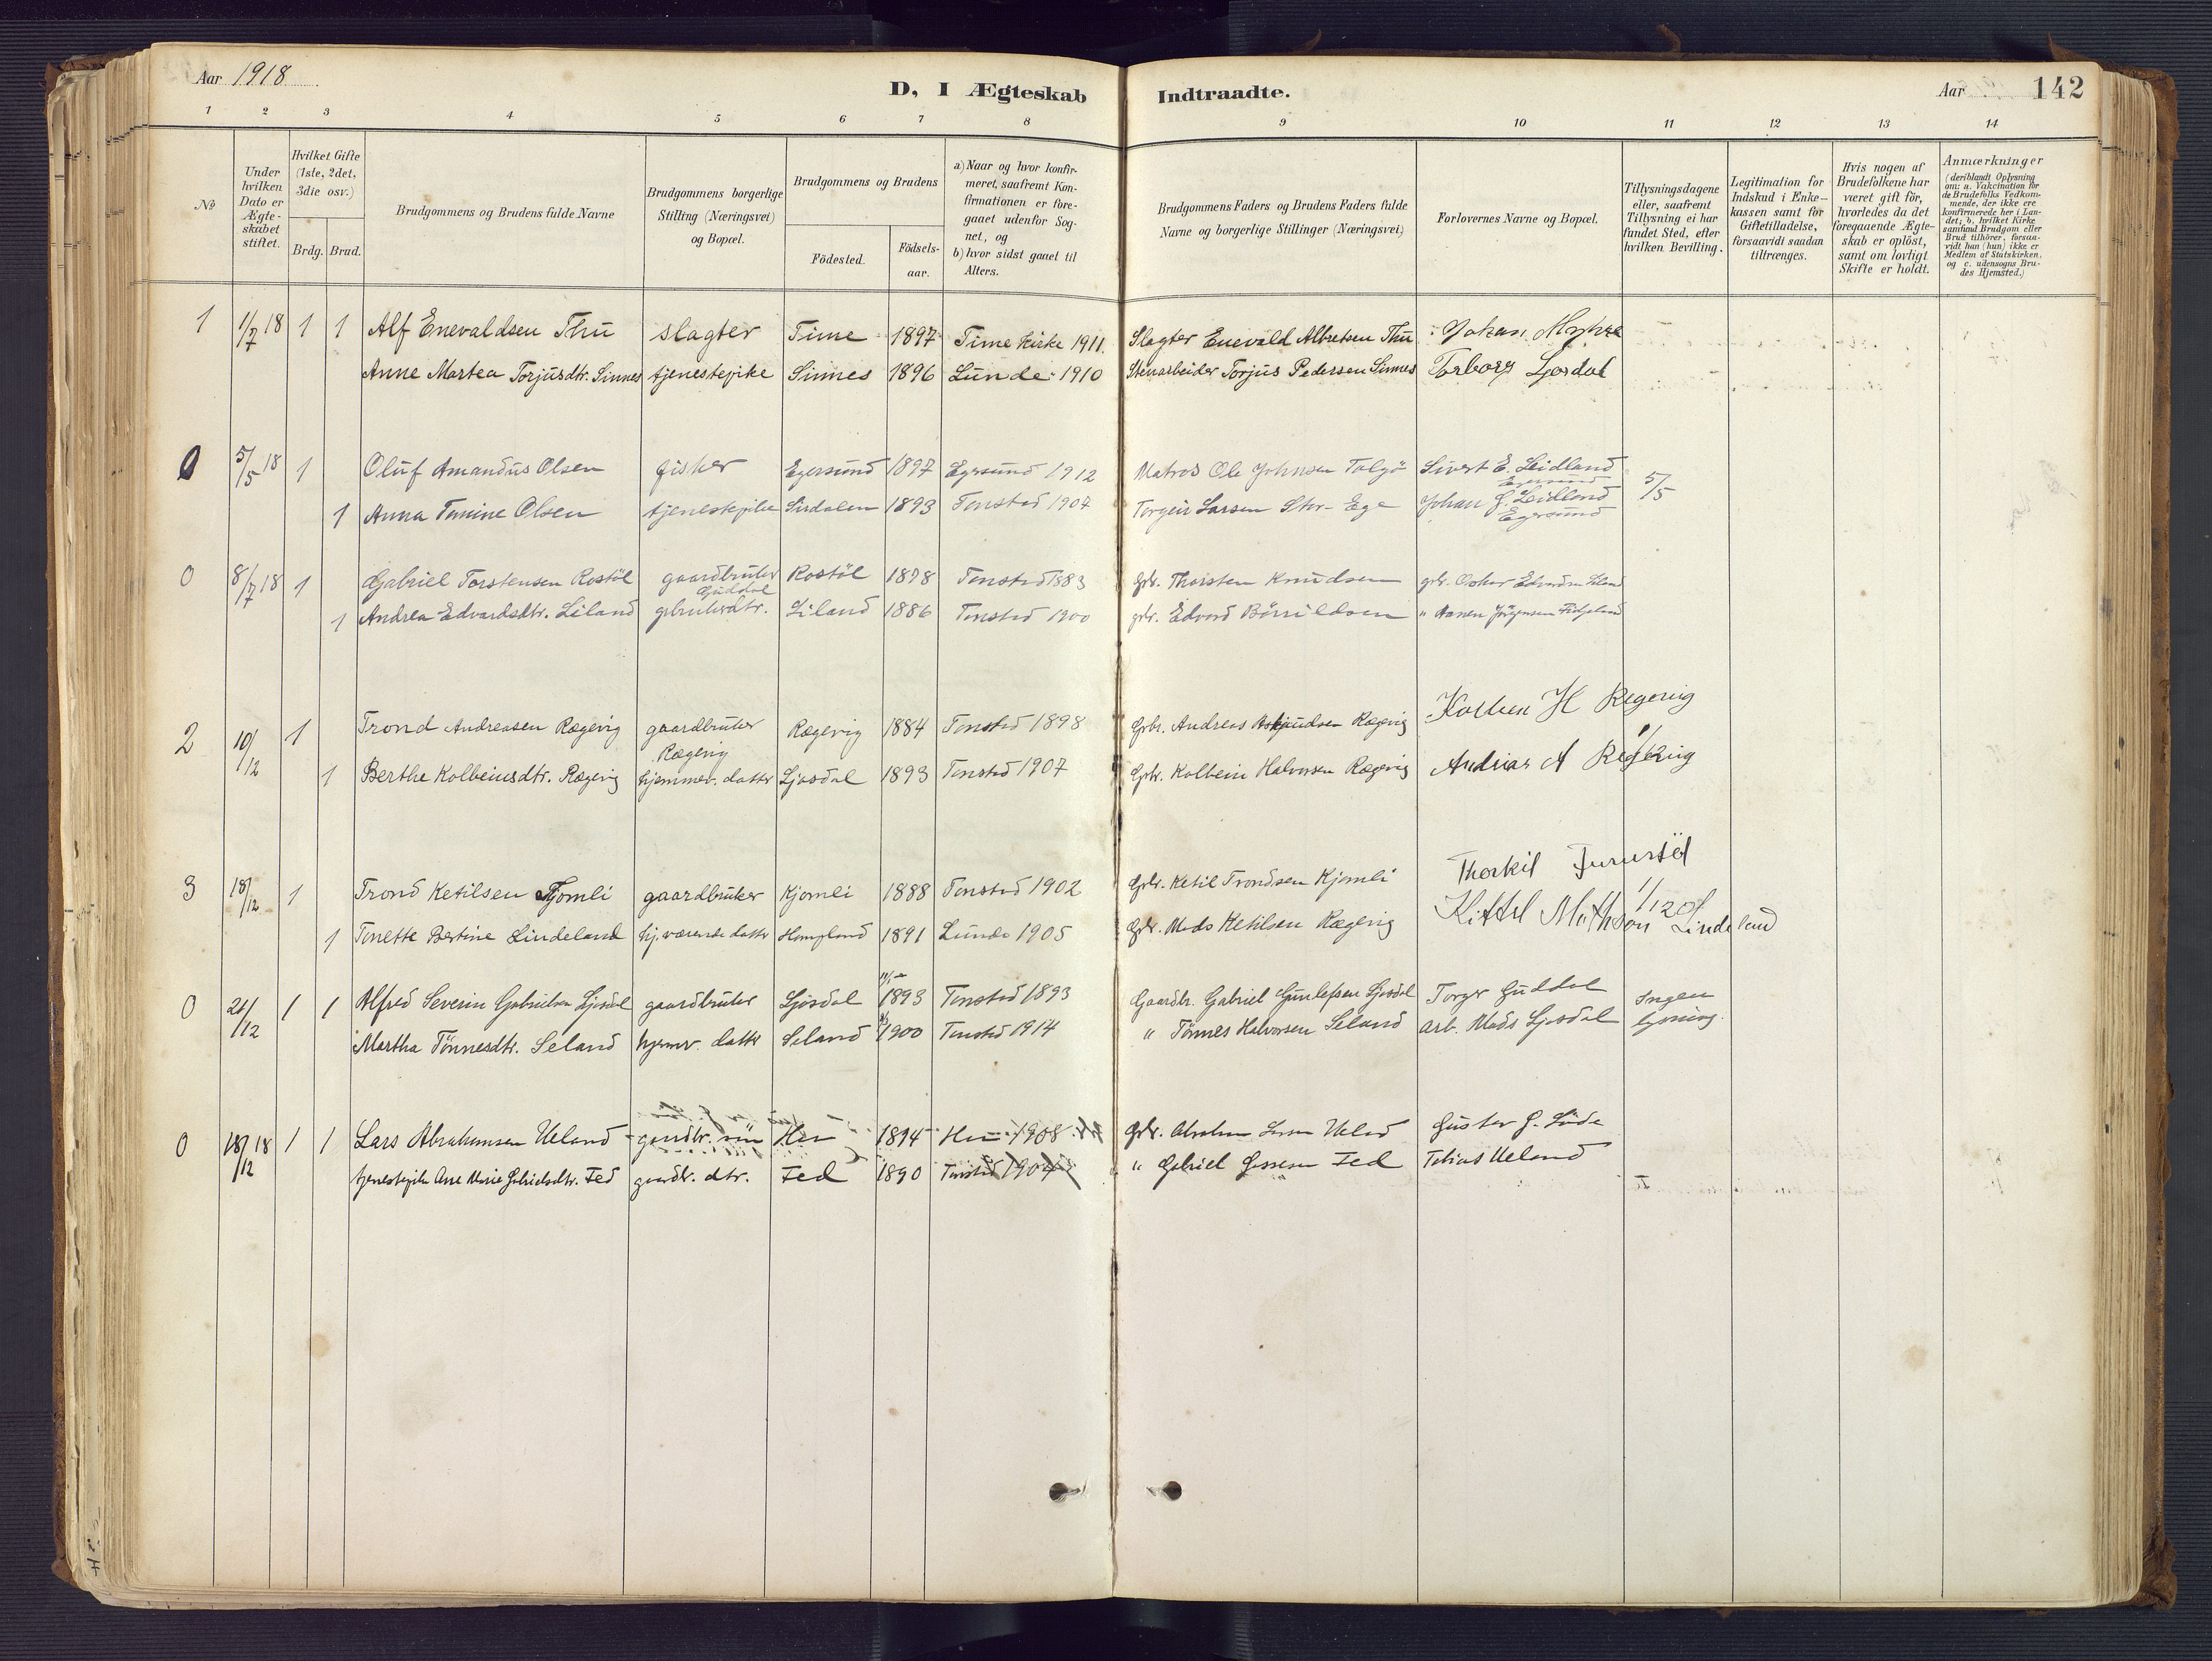 Aar 1918
D, I Ægteskab Indtraadte.
Aar
142
1 2 3 4 5 6 7 8 9 10 11 12 13 14
№
Under hvilken Dato er Ægte-skabet stiftet.
Hvilket Gifte (1ste, 2det, 3die osv.)
Brdg. Brud.
Brudgommens og Brudens fulde Navne
Brudgommens borgerlige Stilling (Næringsvei) og Bopæl.
Brudgommens og Brudens
Födested.
Födsels-aar.
a) Naar og hvor konfir-meret, saafremt Kon-firmationen er fore-gaaet udenfor Sog-net, og
b) hvor sidst gaaet til Alters.
Brudgommens Faders og Brudens Faders fulde Navne og borgerlige Stillinger (Næringsvei)
Forlovernes Navne og Bopæl.
Tillysningsdagene eller, saafremt Tillysning ei har fundet Sted, efter hvilken Bevilling.
Legitimation for Indskud i Enke-kassen samt for Giftetilladelse, forsaavidt saadan tiltrænges.
Hvis nogen af Brudefolkene har været gift för, hvorledes da det foregaaende Ægte-skab er oplöst, samt om lovligt Skifte er holdt.
Anmærkninger (deriblandt Oplysning om: a. Vakcination for de Brudefolks Vedkom-mende, der ikke ere konfirmerede her i Lan-det; b. hvilket Kirke samfund Brudgom eller Brud tilhörer, forsaa-vidt han (hun) ikke er Medlem af Statskirken, og c. udensogns Bru-des Hjemsted.)
1 1/7 18 1 1 Alf Enevaldsen Thu slagter Time 1897 Time Kirke 1911. Slagter Enevald Albretsen Thu Johan Myhre
Anne Martea Torjusdtr. Sinnes tjenestepike Sinnes 1896 Lunde 1910 Stenarbeider Torjus Pedersen Sinnes Torborg Ljosdal
0 5/5 18 1 Oluf Amandus Olsen fisker Egersund 1897 Egersund 1912 Matros Ole Johnsen Talgö Sivert E. Leidland
Egersund 5/5
1 Anna Tomine Olsen tjenestepike Sirdalen 1893 Tonstad 1907 Torgeir Larsen Stor-Ege Johan G. Leidland
Egersund
0 8/7 18 1 Gabriel Torstensen Rostöl gaardbruker Rostöl 1878 Tonstad 1883 gbr. Thorsten Knudsen gbr. Oskar Edvardsen Liland
Guddal
1 Andrea Edvardsdtr. Liland gbrukerdtr. Liland 1886 Tonstad 1900 gbr. Edvard Börrildsen " Aanen Jörgensen Fidjeland
2 10/12 1 Trond Andreasen Rægevig gaardbruker Rægevig 1884 Tonstad 1898 Gbr. Andreas Rægevig Kolben H Regevig
Rægevig
1 Berthe Kolbeinsdtr. Rægevig hjemmev. datter Ljosdal 1893 Tonstad 1907 Gbr. Kolbein Halvorsen Rægevig Andrias A Regevig
3 18/12 1 Trond Ketilsen Kjomli gaardbruker Kjomli 1888 Tonstad 1902 Gbr. Ketil Trondsen Kjomli Thorkil
1 Tonette Bertine Lindeland hj. værende datter 1891 Lunde 1905 Gbr. Mads Ketilsen Rægevig Kittel Mathson Lindeland
0 21/12 1 1 Alfred Severin Gabrielsen Ljosdal gaardbruker Ljosdal 1893 Tonstad 1893 Gaardbr. Gabriel Gunlefsen Ljosdal Torger Guddal Ingen
Martha Tönnesdtr. Seland hjemv. datter Seland 1900 Tonstad 1914 " Tönnes Halvorsen Seland arb. Mads Ljosdal lysning.
0 18/12 18 1 1 Lars Abrahamsen Ueland gaardbr. sön 1894 1908 Gbr. Abraham Ueland Gustav G.
tjenestepike Ane Marie Gabrielsdtr. Fed gaardbr. dtr. Fed 1890 Tonstad 1904 " Gabriel Fed Tobias Ueland